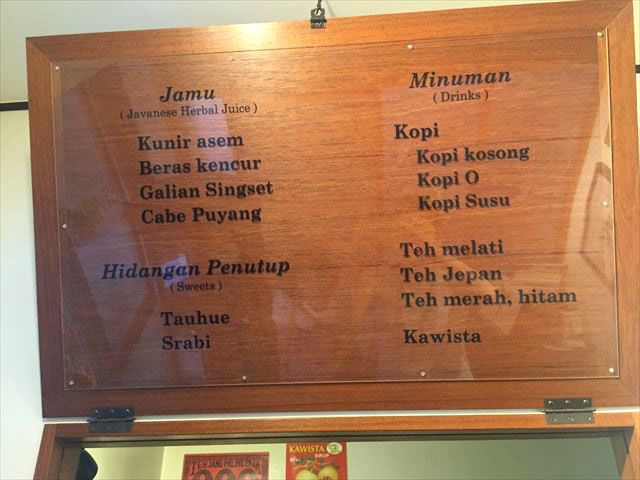 Jamu
( Javanese Herbal Juice )
Kunir asem
Beras kencur
Galian Singset
Cabe Puyang
Hidangan Penutup
( Sweets )
Tauhue
Srabi
Minuman
( Drinks )
Kopi
Kopi kosong
Kopi O
Kopi Susu
Teh melati
Teh Jepan
Teh merah, hitam
Kawista
TEH JANG PALING ENAK
KAWISTA
SIRUP